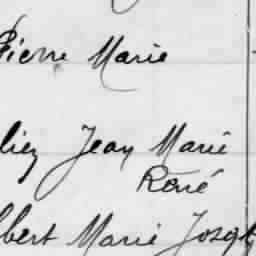 Pierre Marie
liez Jean Marie
René
lbert Marie Joseph